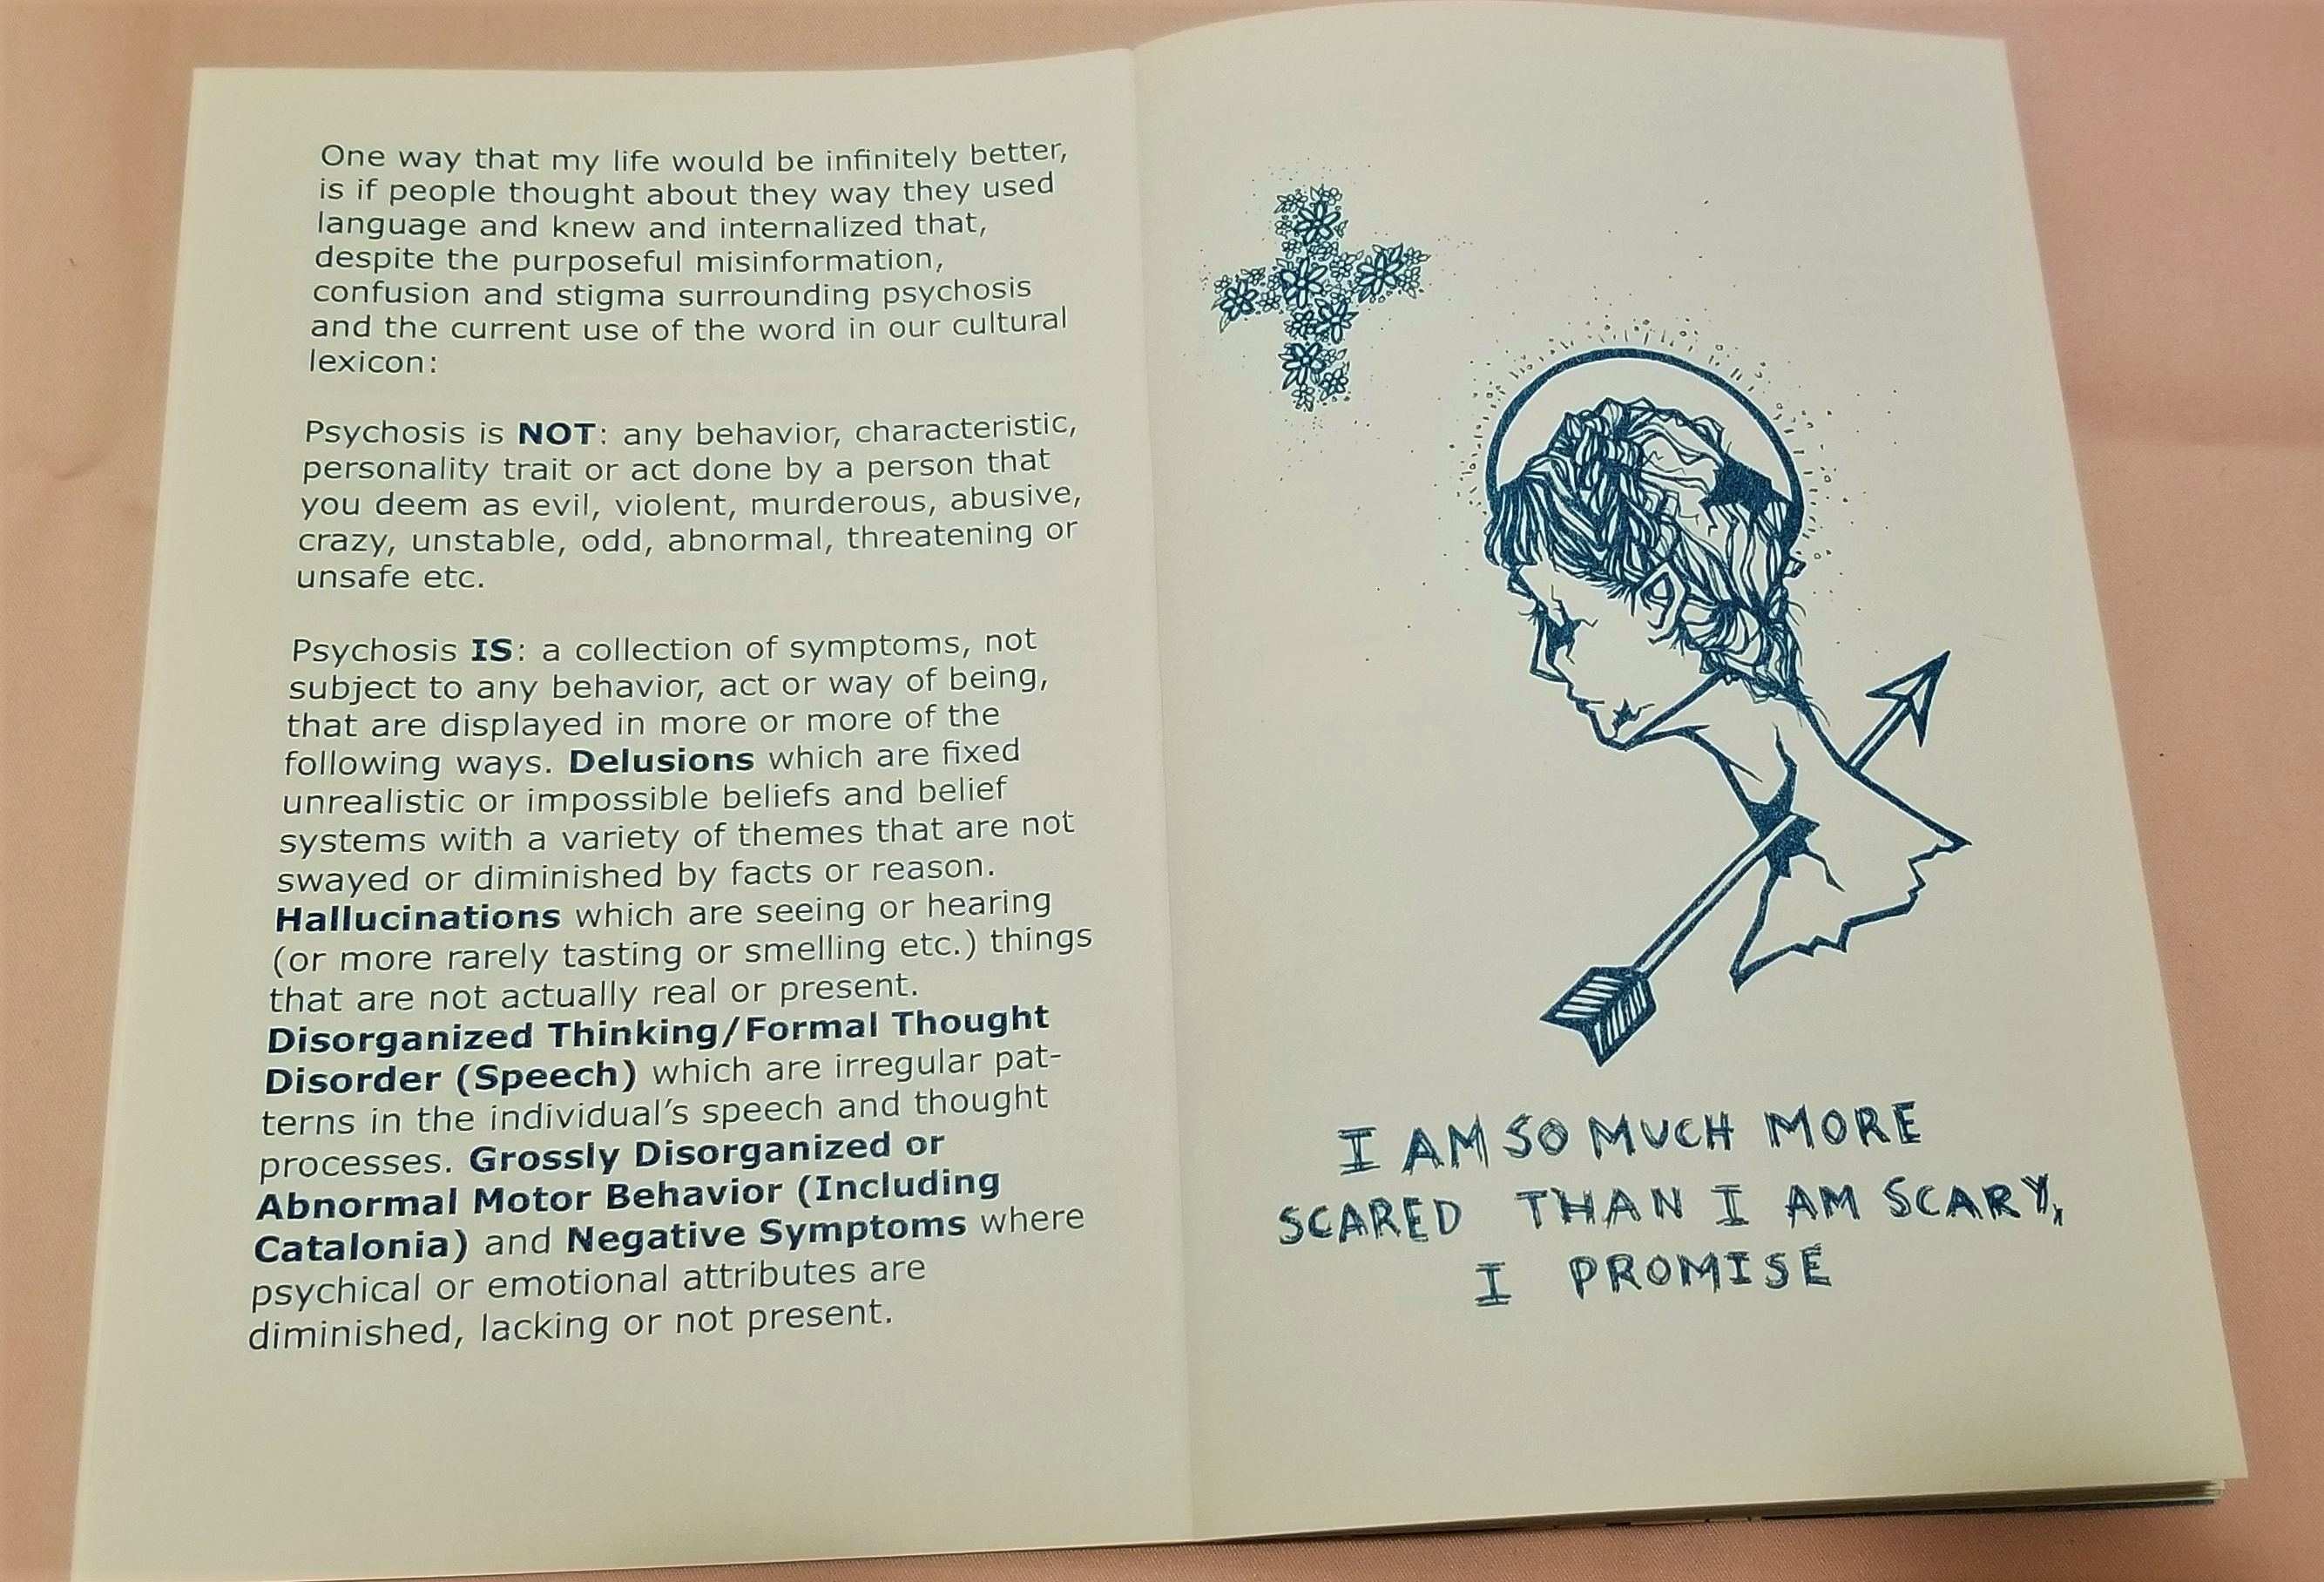 One way that my life would be infinitely better,
is if people thought about they way they used
language and knew and internalized that,
despite the purposeful misinformation,
confusion and stigma surrounding psychosis
and the current use of the word in our cultural
lexicon:
Psychosis is NOT: any behavior, characteristic,
personality trait or act done by a person that
you deem as evil, violent, murderous, abusive,
crazy, unstable, odd, abnormal, threatening or
unsafe etc.
Psychosis IS: a collection of symptoms, not
subject to any behavior, act or way of being,
that are displayed in more or more of the
following ways. Delusions which are fixed
unrealistic or impossible beliefs and belief
systems with a variety of themes that are not
swayed or diminished by facts or reason.
Hallucinations which are seeing or hearing
(or more rarely tasting or smelling etc.) things
that are not actually real or present.
Disorganized Thinking/Formal Thought
Disorder (Speech) which are irregular pat-
terns in the individual's speech and thought
processes. Grossly Disorganized or
Abnormal Motor Behavior (Including
Catalonia) and Negative Symptoms where
psychical or emotional attributes are
diminished, lacking or not present.
I AM SO MUCH MORE
SCARED THAN I AM SCARY,
I PROMISE